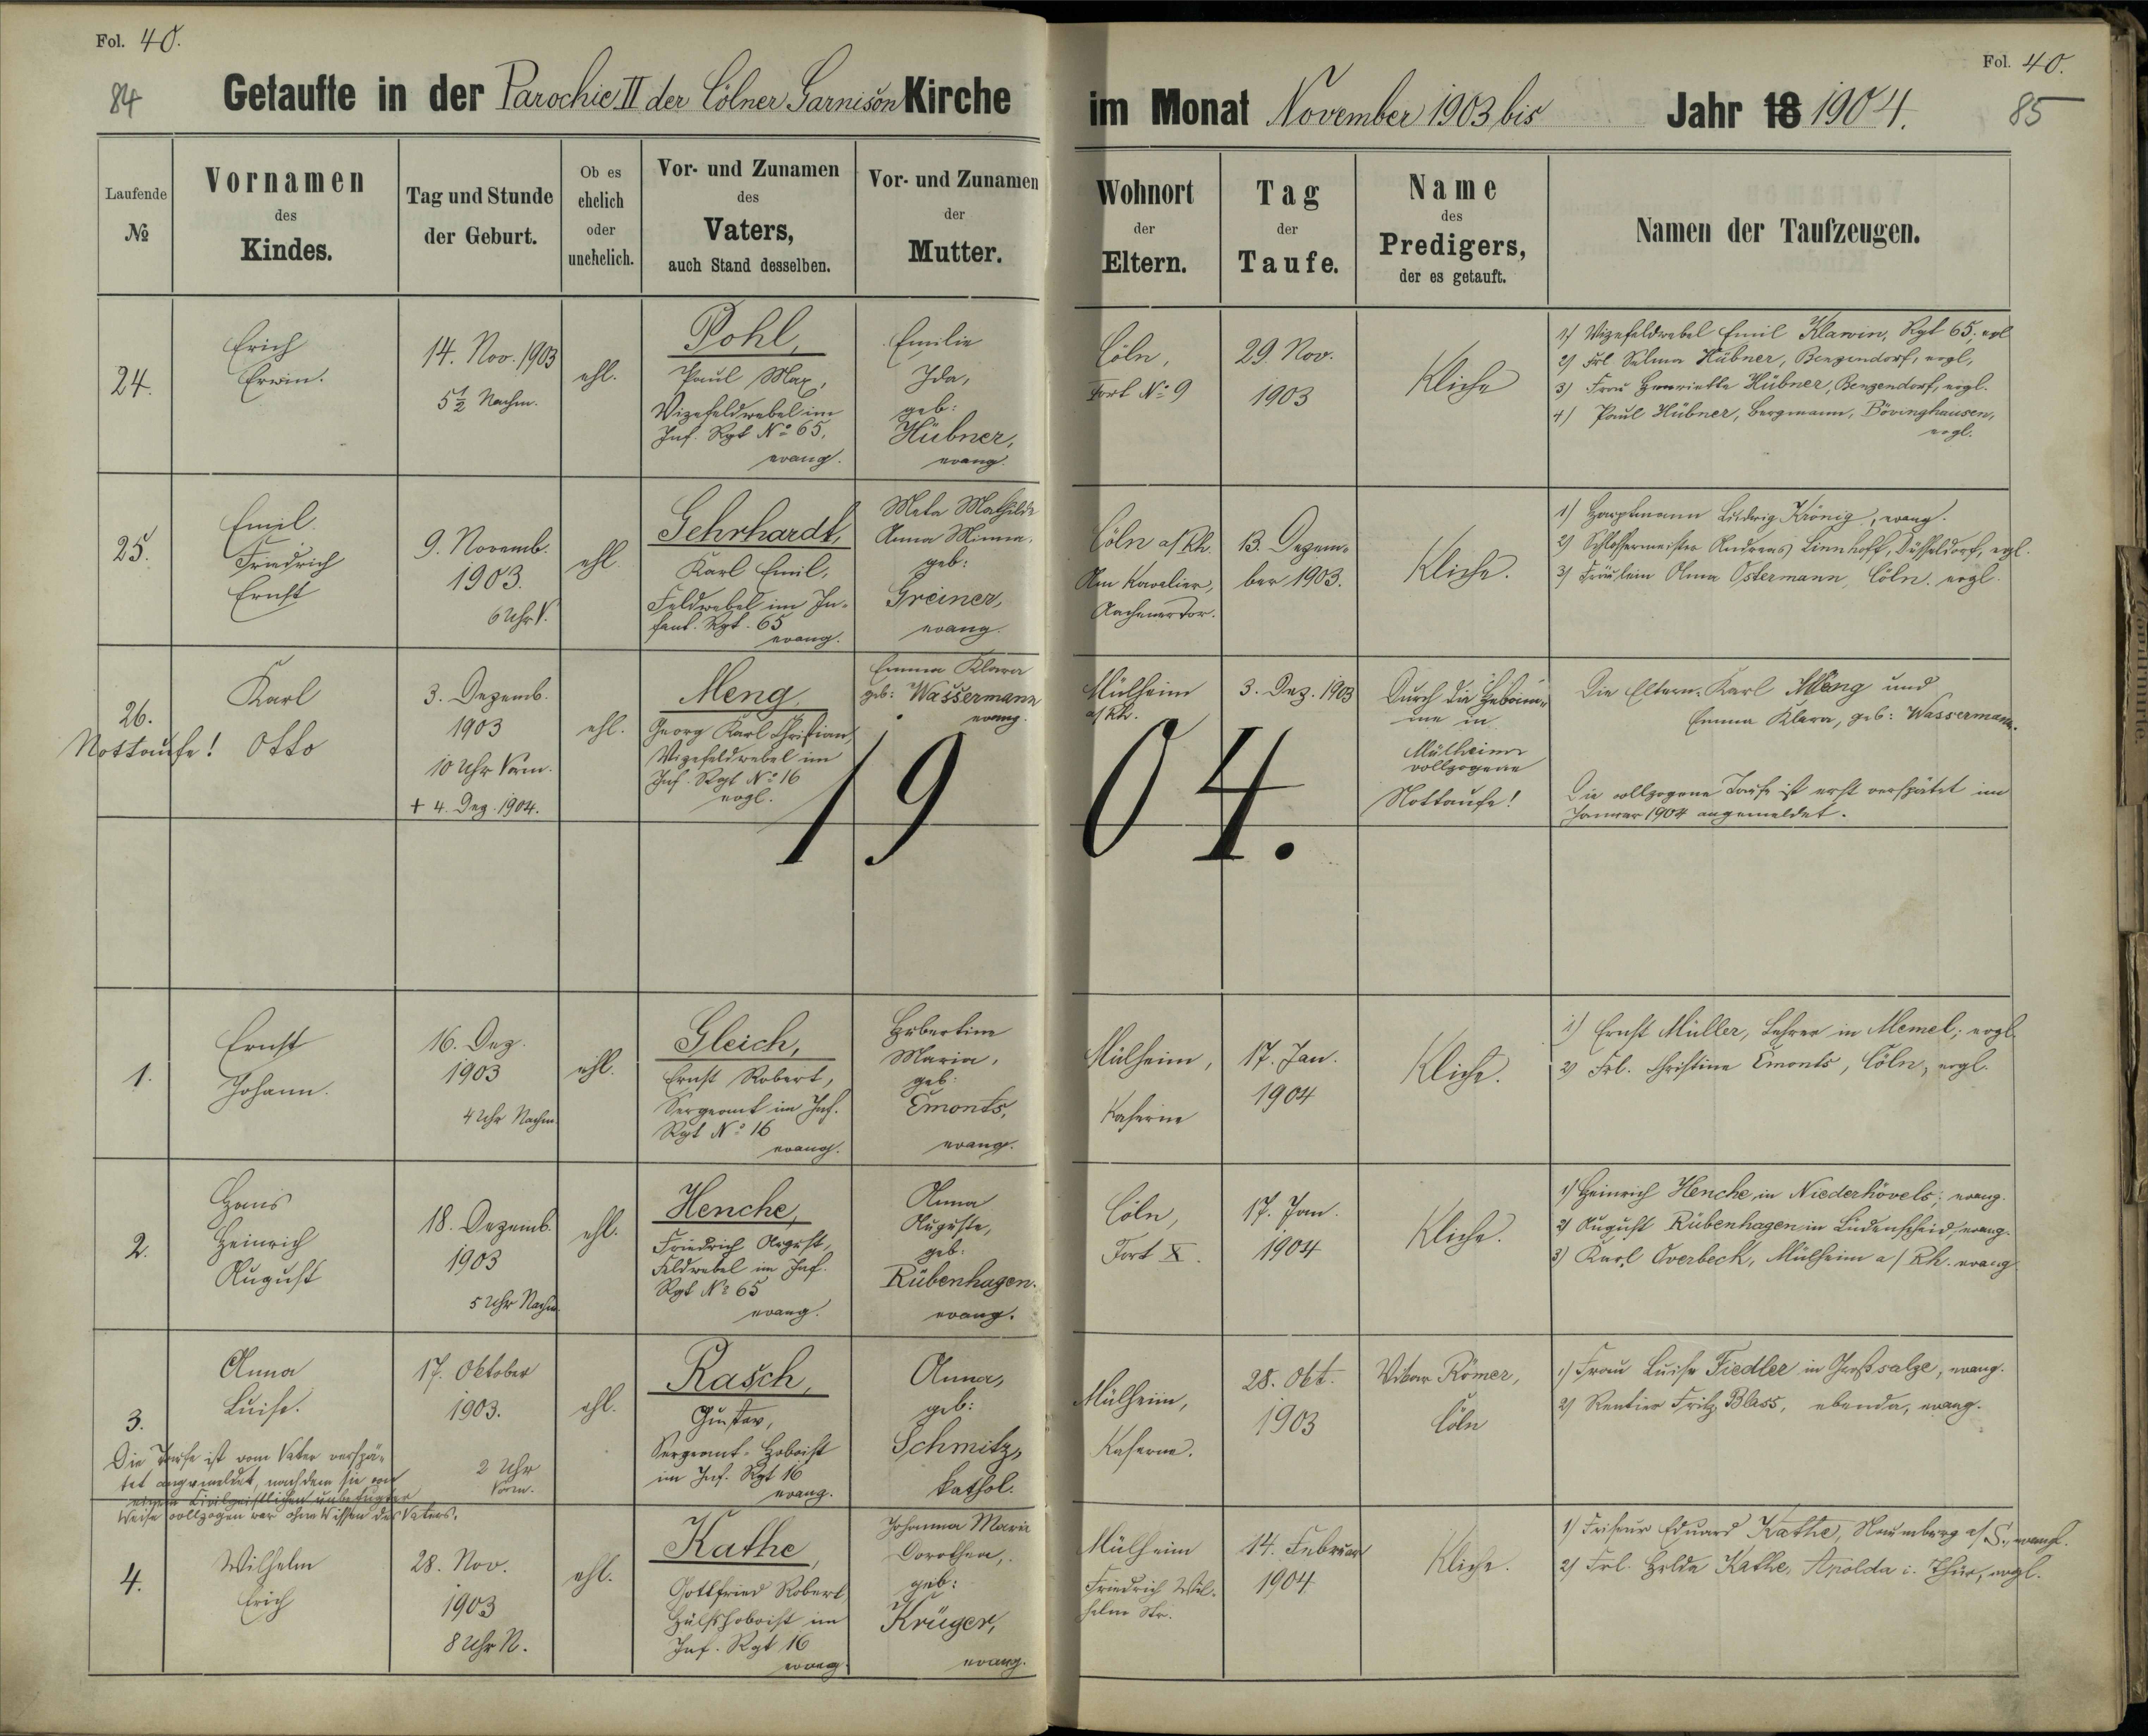 Fol. 40.
84
Getaufte in der Parochie II der Cölner Garnison Kirche
Laufende
№
Vornamen
des
Kindes.
Tag und Stunde
der Geburt.
Ob es
ehelich
oder
unehelich.
Vor- und Zunamen
des
Vaters,
auch Stand desselben.
Vor- und Zunamen
der
Mutter.
Fol. 40.
im Monat November 1903 bis Jahr 18 1904.
85
Wohnort
der
Eltern.
Tag
der
Taufe.
Name
des
Predigers,
der es getauft.
Namen der Taufzeugen.
24.
Erich
Erwin.
14. Nov. 1903
5½ Nachm.
ehl.
Pohl,
Paul Max,
Vizefeldwebel im
Inf. Rgt №65,
evang.
Emilie
Ida,
geb:
Hübner,
evang.
Cöln,
Fort № 9
29. Nov.
1903
Kliche
1) Vizefeldwebel Emil Klawin, Rgt 65, evl
2) Frl Selma Hübner, Benzendorf, evgl,
3) Frau Henriette Hübner, Benzendorf, evgl.
4) Paul Hübner, Bergmann, Bövinghausen,
evgl.
25.
Emil
Friedrich
Ernst
9. Novemb.
1903.
6 Uhr V.
ehl
Gehrhardt,
Karl Emil,
Feldwebel im In-
fant. Rgt. 65
evang.
Meta Mathilde
Anna Minna,
geb:
Greiner,
evang.
Cöln a/Rh.
Am Kavalier,
Aachenertor.
13. Dezem-
ber 1903.
Kliche.
1) Hauptmann Ludwig Krönig, evang.
2) Schlossermeister Andreas Linnhoff, Düsseldorf, evgl.
3) Fräulein Anna Ostermann, Cöln. evgl.
26.
Nottaufe!
Karl
Otto
3. Dezemb.
1903
10 Uhr Vorm.
+ 4. Dez. 1904.
ehl.
Meng,
Georg Karl Christian,
Vizefeldwebel im
Inf. Rgt №16
evgl.
Emma Klara
geb: Wassermann
evang.
Mülheim
a/Rh.
3. Dez. 1903
Durch die Hebam-
me in
Mülheim
vollzogene
Nottaufe!
Die Eltern. Karl Meng und
Emma Klara, geb: Wassermann.
Die vollzogene Taufe ist erst verspätet im
Januar 1904 angemeldet.
1904.
1.
Ernst
Johann.
16. Dez.
1903
4 Uhr Nachm.
ehl.
Gleich,
Ernst Robert,
Sergeant im Inf.
Rgt №16
evang.
Hubertine
Maria,
geb:
Emonts,
evang.
Mülheim,
Kaserne
17. Jan.
1904
Kliche.
1) Ernst Müller, Lehrer in Memel; evgl.
2) Frl. Christine Emonts, Cöln, evgl.
2.
Hans
Heinrich
August
18. Dezemb.
1903
5 Uhr Nachm.
ehl.
Henche,
Friedrich August,
Feldwebel im Inf.
Rgt №65
evang.
Anna
Auguste,
geb:
Rübenhagen.
evang.
Cöln,
Fort X.
17. Jan.
1904
Kliche.
1) Heinrich Henche, in Niederhövels; evang.
2) August Rübenhagen in Lüdenscheid, evang.
3) Karl Overbeck, Mülheim a/Rh. evang
3.
Anna
Luise.
Die Taufe ist vom Vater verspä-
tet angemeldet, nachdem sie von
einem Civilgeistlichen unbefugter
Weise vollzogen war ohne Wissen des Vaters.
17. Oktober
1903.
2 Uhr
Vorm.
ehl.
Rasch,
Gustav,
Sergeant-Hoboist
im Inf. Rgt 16
evang.
Anna,
geb:
Schmitz,
kathol.
Mülheim,
Kaserne.
28. Okt.
1903
Vikar Römer,
Cöln
1) Frau Luise Fiedler in Großsalze, evang.
2) Rentier Fritz Blass, ebenda, evang.
4.
Wilhelm
Erich
28. Nov.
1903
8 Uhr N.
ehl.
Kathe,
Gottfried Robert
Hülfshoboist im
Inf. Rgt 16
evang.
Johanna Marie
Dorothea,
geb:
Krüger,
evang.
Mülheim
Friedrich Wil-
helm Str.
14. Februar
1904
Kliche.
1) Friseur Eduard Kathe, Naumberg a/S., evangl.
2) Frl. Helda Kathe, Apolda i. Thür, evgl.